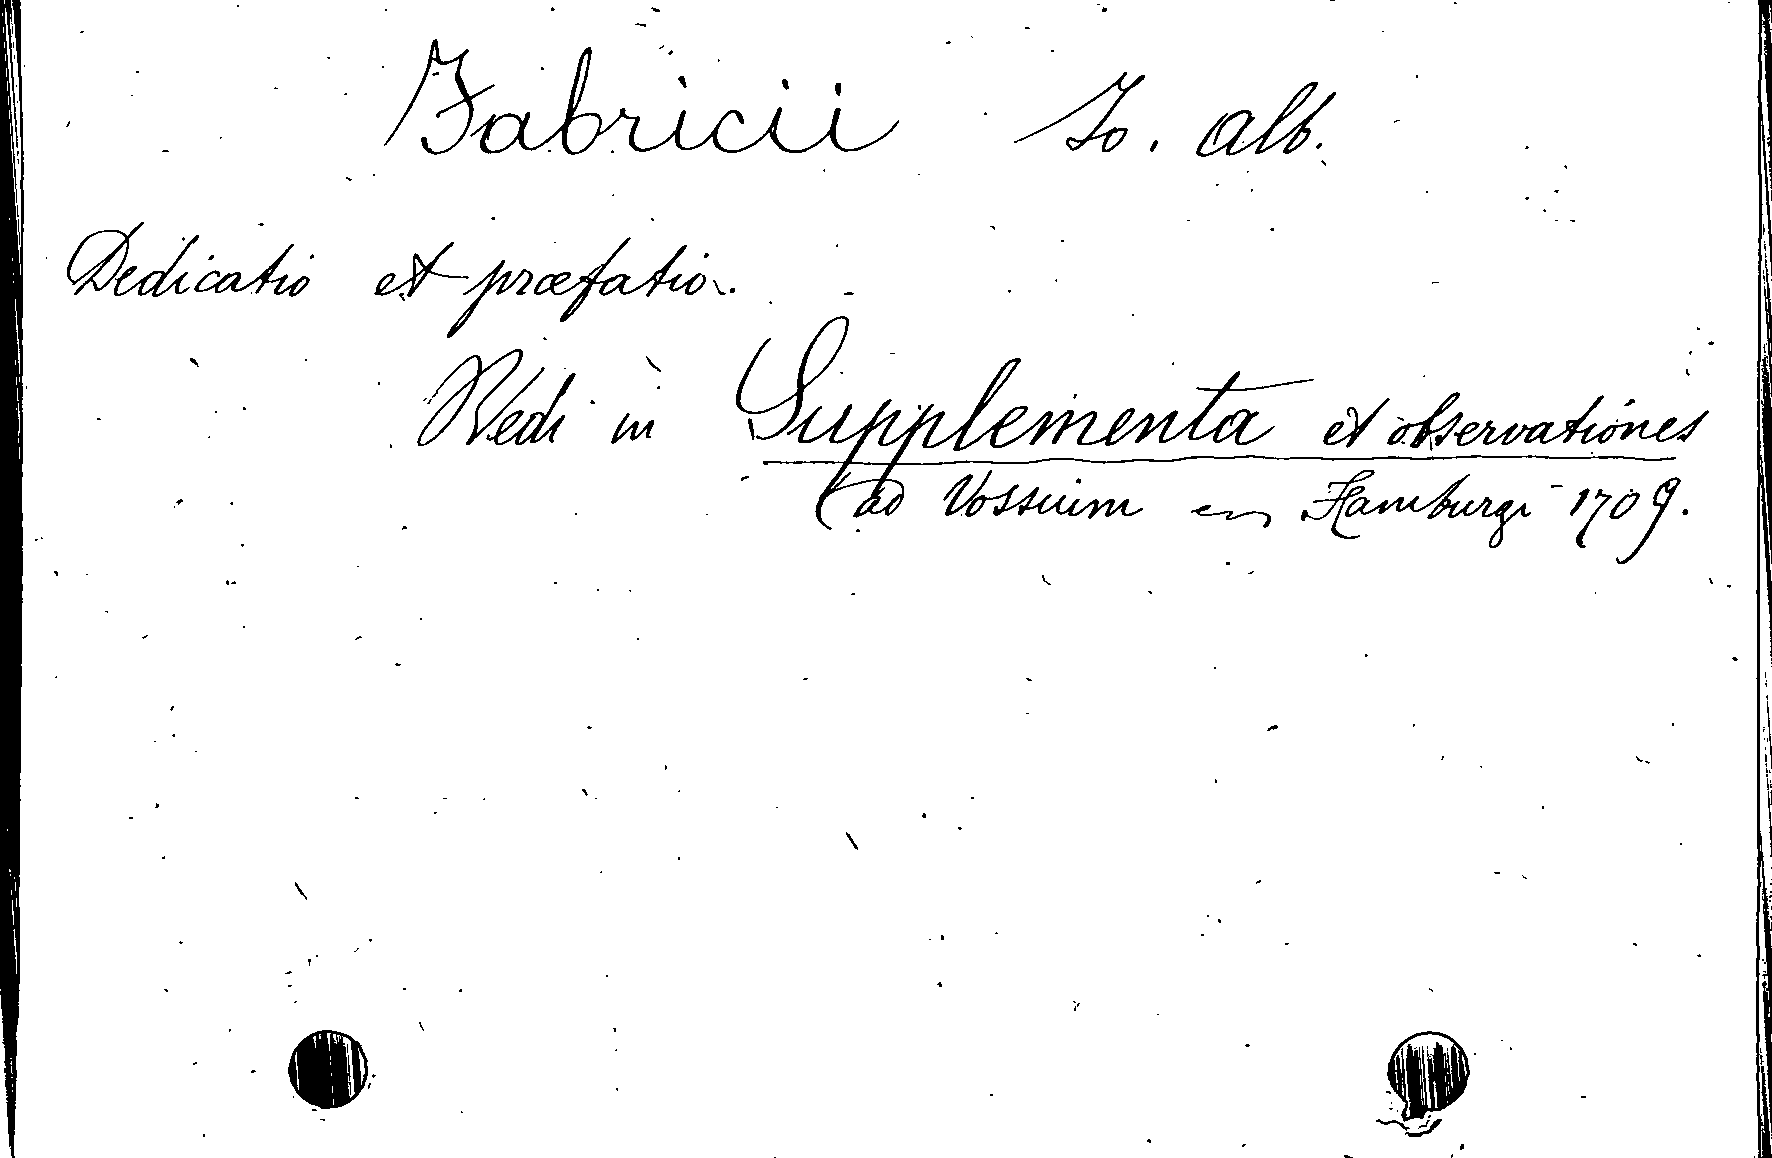 Fabricii Jo. Alb.
Dedicatio et præfatio.
Vedi in Supplementa et observationes
ad Vossium en Hamburgi 1709.